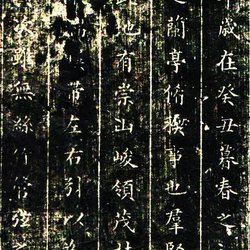 歲在癸丑暮春之
之蘭亭脩禊事也羣賢
地有崇山峻領茂林
帶左右引以為
次雖無絲竹管弦之